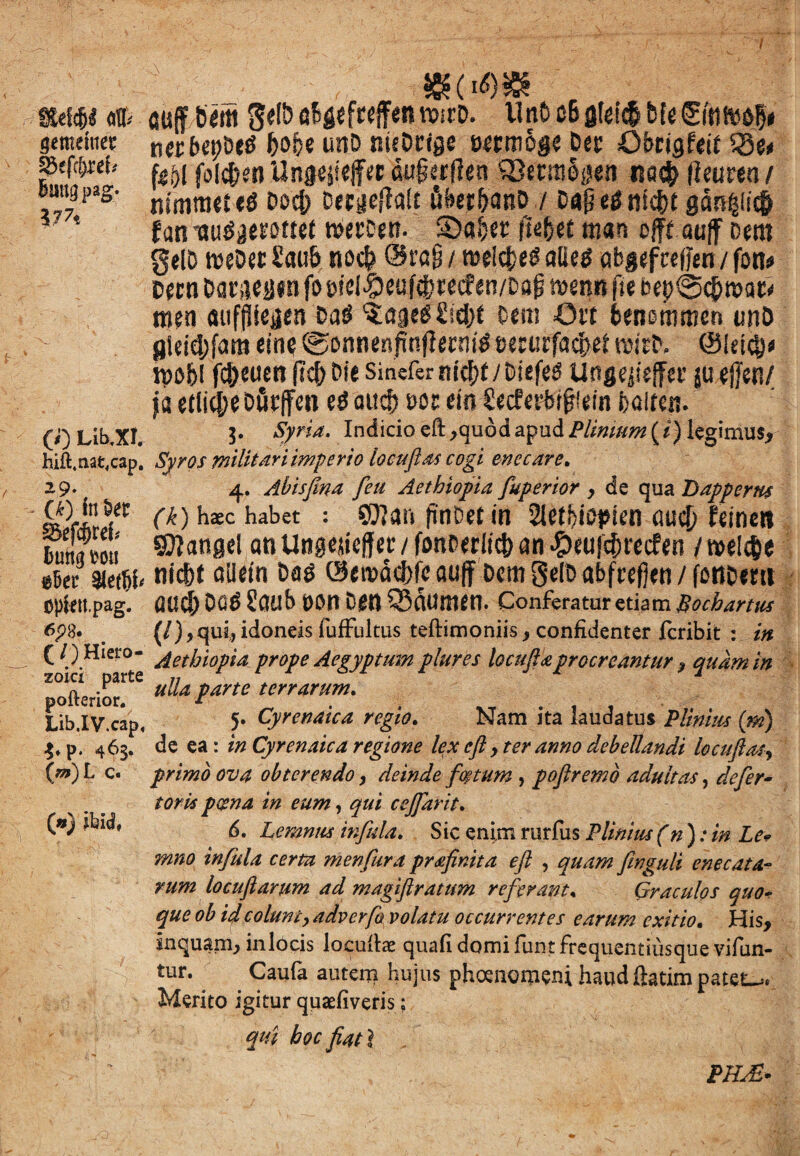 (16)
Reichs all-
gemeiner
Beschrei-
bung pag.
377.
auff dem Feld abgefressen wird. Und ob gleich die Einwoh-
ner beydes hohe und niedrige vermöge der Obrigkeit Be-
fehl solchen Ungezieffer äußersten Vermögen nach steuren /
nimmet es doch dergestalt überhand / daß es nicht gäntzlich
kan ausgerottet werden. Daher siehet man offt auff dem
Feld weder Laub noch Graß / welches alles abgefressen / son-
dern dargegen so viel Heuschrecken / daß wenn sie bey Schwar-
men auffliegen das Tages Licht dem Ort benommen und
gleichsam eine Sonnenfinsternis verursachet wird. Gleich-
wohl scheuen sich die Sineser nicht / dieses Ungezieffer zu essen /
ja etliche dürffen es auch vor ein Leckerbißlein halten.
(i) Lib.XI.
hist.nat.cap.
29.
3. Syria. Indicio est, quod apud Plinium (i) legimus,
Syros militari imperio locustas cogi enecare.
(k) in der
Beschrei-
bung von
ober Aethi-
opien.pag.
698.
4. Abissina seu Aethiopia superior, de qua Dapperus
(k) hæc habet : Man findet in Aethiopien auch keinen
Mangel an Ungezieffer / sonderlich an Heuschrecken / welche
nicht allein das Gewächse auff dem Feld abfressen / sondern
auch das Laub von den Bäumen. Conferatur etiam Bochartus
(l), qui, idoneis suffultus testimoniis, confidenter scribit : in
Aethiopia prope Aegyptum plures locustæ procreantur, quàm in
ulla parte terrarum.
(l) Hiero-
zoici parte
posterior.
Lib.IV.cap.
3. p. 463.
(m) L c.
5. Cyrenaica regio. Nam ita laudatus Plinius (m)
de ea : in Cyrenaica regione lex est, ter anno debellandi locustas,
primò ova obterendo, deinde fœtum, postremò adultas, deser-
toris pœna in eum, qui cessarit.
(n) ibid.
6. Lemnus insula. Sic enim rursus Plinius (n) : in Le-
mno insula certa mensura præfinita est, quam singuli enecata-
rum locustarum ad magistratum referant. Graculos quo-
que ob id colunt, adverso volatu occurrentes earum exitio. His,
inquam, in locis locustæ quasi domi sunt frequentiùsque visun-
tur. Causa autem hujus phœnomeni haud statim patet.
Merito igitur quæsiveris :
qui hoc fiat ?
PHÆ-